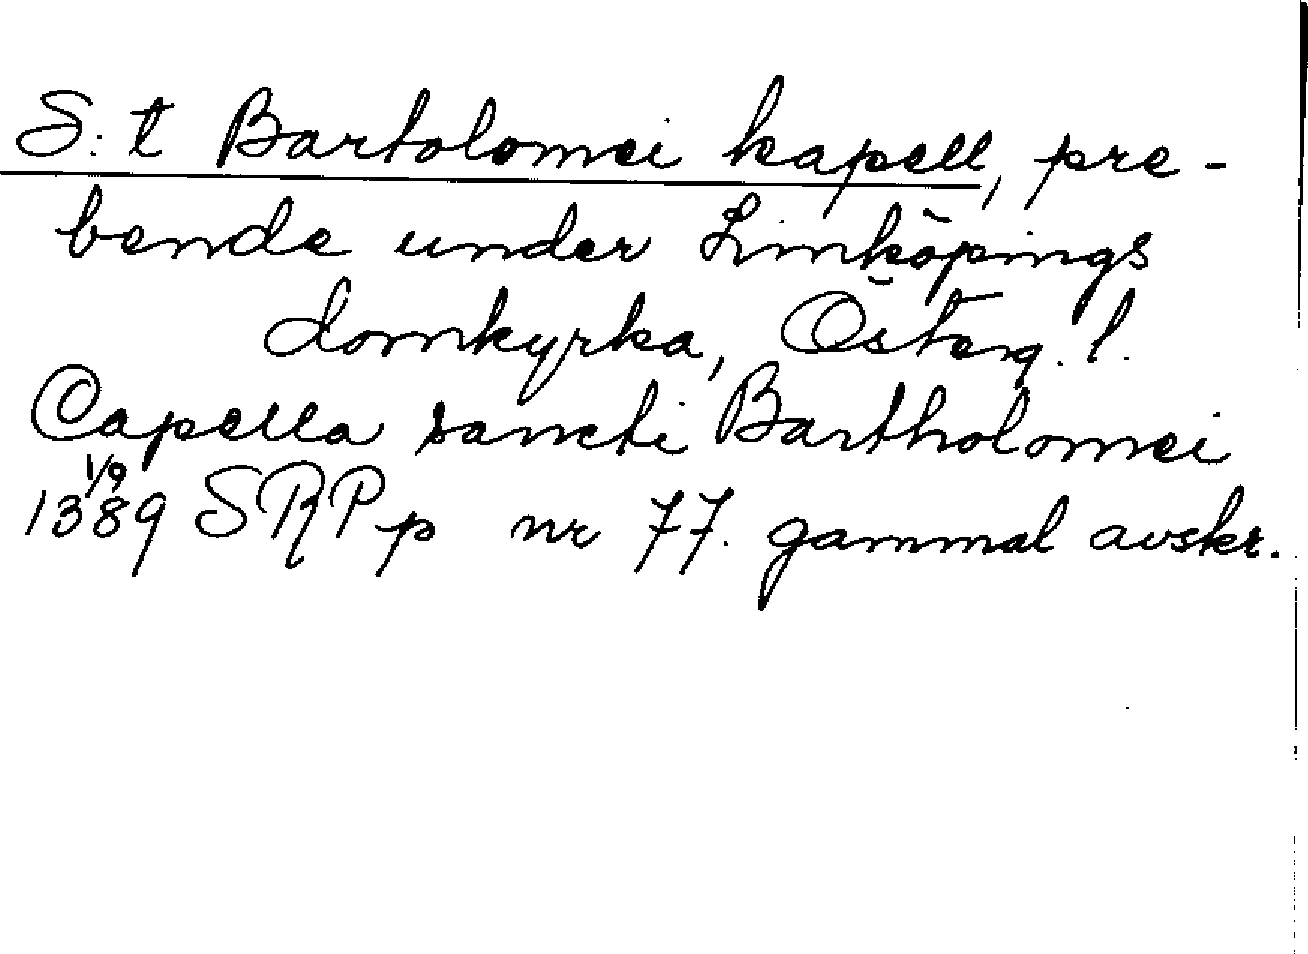 S:t Bartolomei kapell, pre-
bende under Linköpings
domkyrka, Österg. l.
Capella sancti Bartholomei
1/9
1389 SRPp nr 77. gammal avskr.